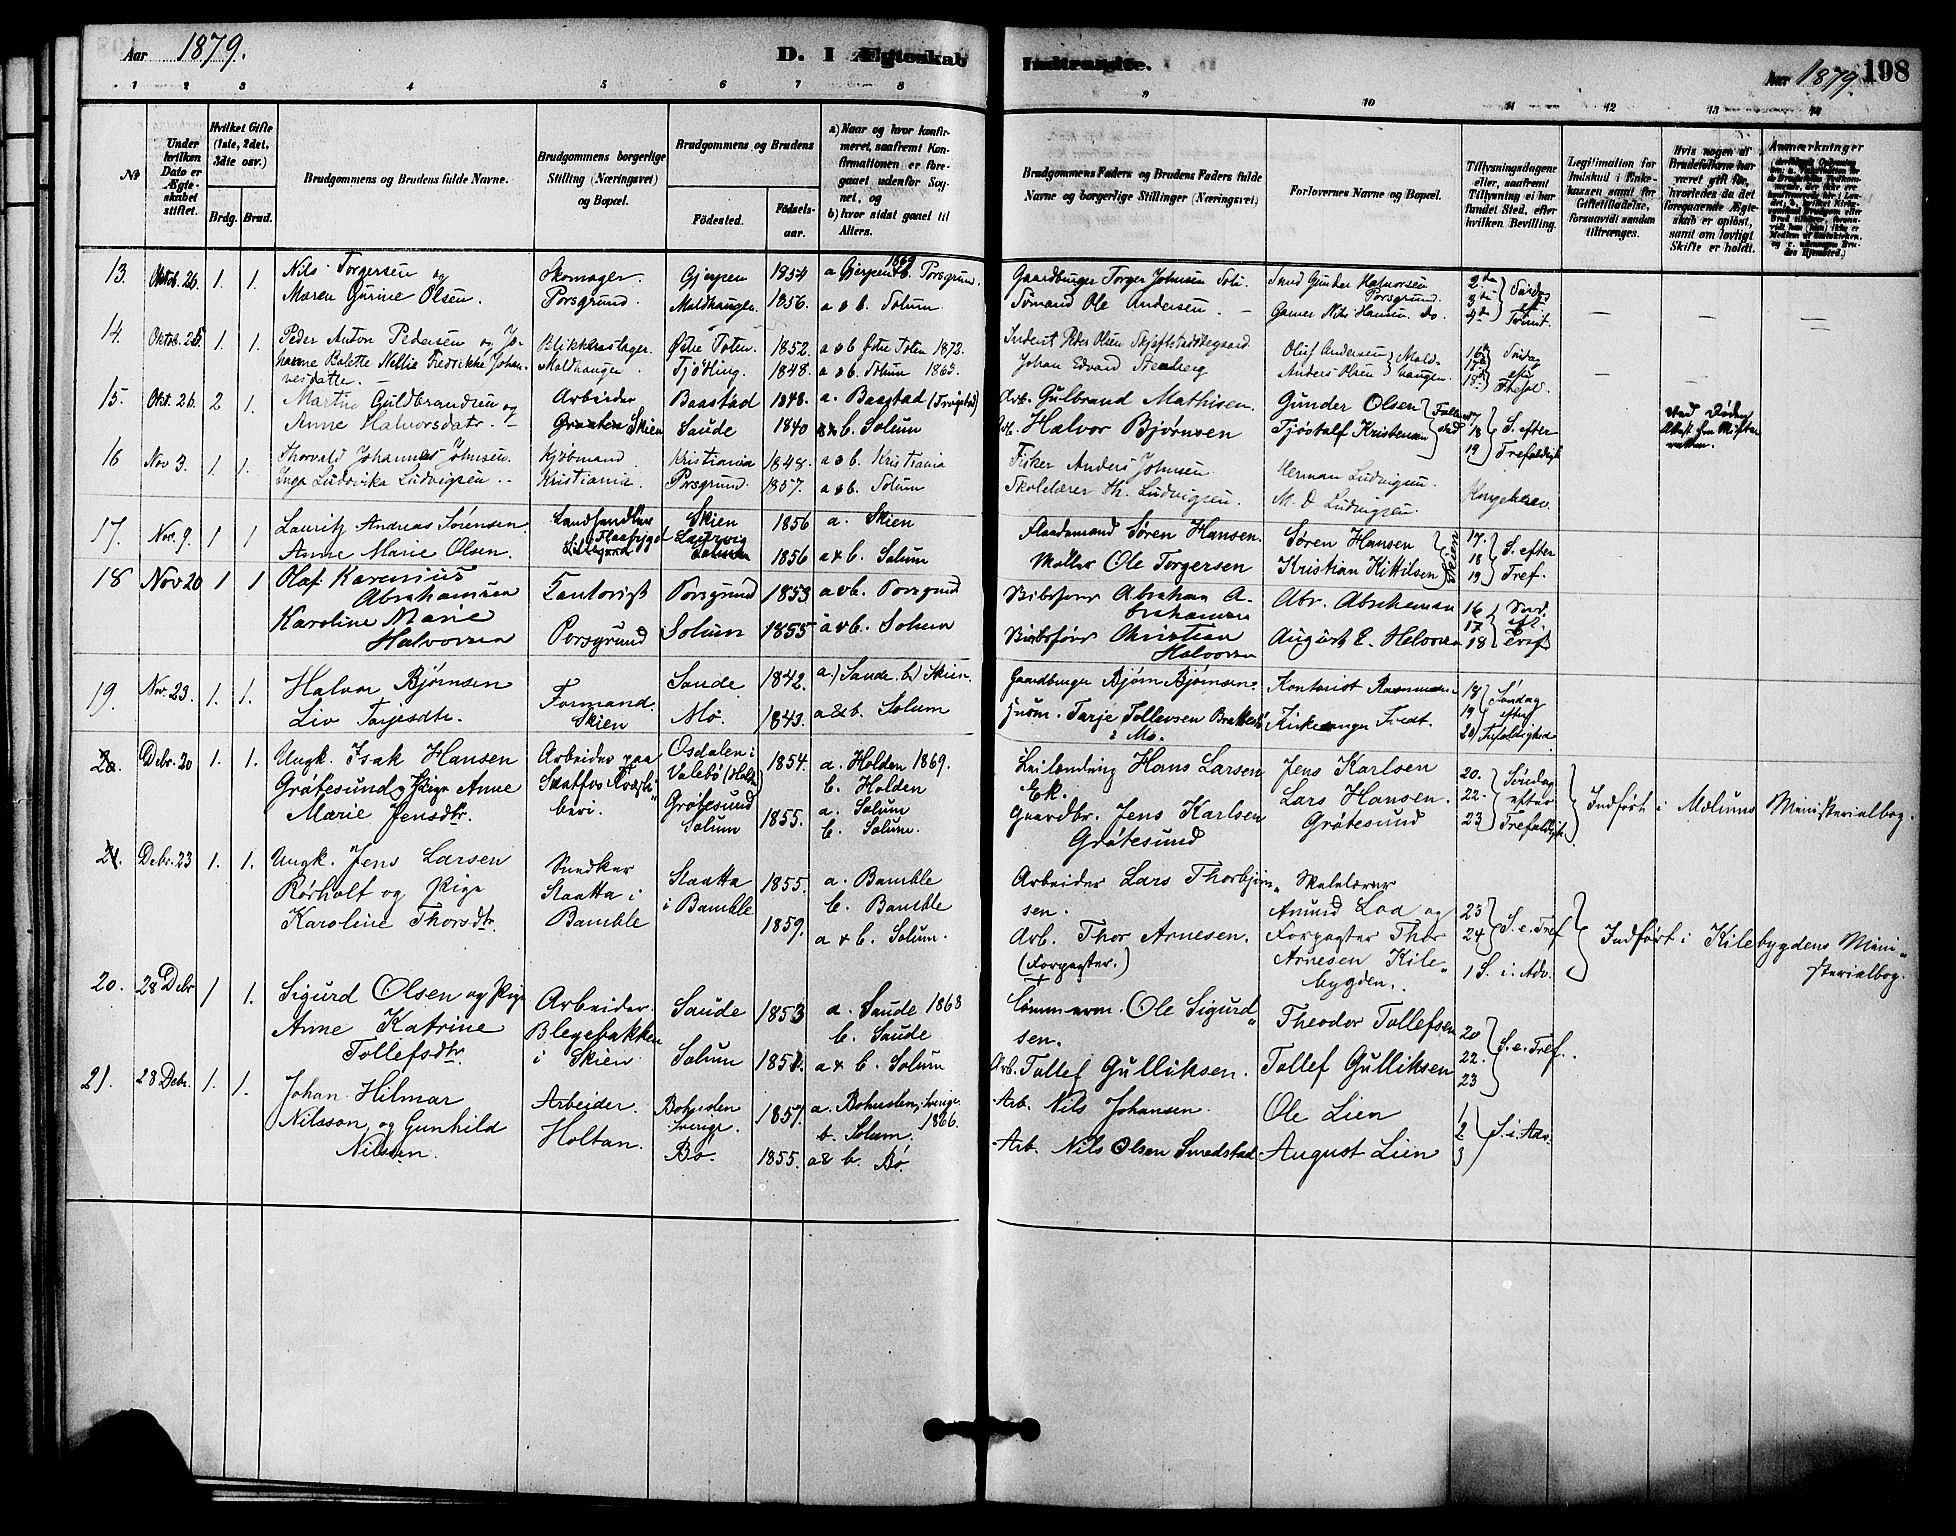 Aar 1879.
D. I Ægteskab Indtraadte.
Aar 1879. 198
1 2 3 4 5 6 7 8 9 10 11 12 13 14
No
Under hvilken Dato er Ægteskabet stiftet.
Hvilket Gifte (1ste, 2det, 3die osv.)
Brdg. Brud.
Brudgommens og Brudens fulde Navne.
Brudgommens borgerlige Stilling (Næringsvei) og Bopæl.
Brudgommens og Brudens
Födested.
Födselsaar.
a) Naar og hvor konfirmeret, saafremt Konfirmationen er foregaaet udenfor Sognet, og
b) hvor sidst gaaet til Alters.
Brudgommens Faders og Brudens Faders fulde Navne og borgerlige Stillinger (Næringsvei)
Forlovernes Navne og Bopæl.
Tillysningsdagene eller, saafremt Tillysning ei har fundet Sted, efter hvilken Bevilling.
Legitimation for Indskud i Enkekassen samt for Giftetilladelse, forsaavidt saadan tiltrænges.
Hvis nogen af Brudefolkene har været gift för, hvorledes da det foregaaende Ægteskab er oplöst, samt om lovligt Skifte er holdt.
Anmærkninger
13. Oktob. 26. 1. 1. Nils Torgersen og
Maren Gurine Olsen.
Skomager
Porsgrund.
Gjerpen 1854 a Gjerpen 1869 b. Porsgrund.
Moldhaugen 1856. a o b. Solum
Gaardbruger Torger Johnsen
Sömand Ole Andersen.
Gunder Halvorsen Porsgrund.
Garver Nils Hansen do.
2den 3die 4de Söndag eft Trinit.
14. Oktob. 25. 1. 1. Peder Anton Pedersen og Johanne Bolette Nellie Fredrikke Johannesdatter.
Blikkenslager.
Moldhaugen.
Østre Toten. 1852. a o b Østre Toten 1872.
Tjödling. 1848. a o b. Solum 1863.
Inderst Peder Olsen
Johan Edvard Stenberg
Oluf Andersen
Anders Olsen Moldhaugen
16 17 18 Söndag eft Trefold.
15. Okt. 26 2 1. Martin Guldbrandsen og
Anne Halvorsdatr.
Arbeider
Skien
Baastad 1848. a. Baastad (Trögstad)
Saude 1840 a & b. Solum
Arb. Gulbrand Mathisen.
Arb. Halvor Bjørnsen
Gunder Olsen
Tjöstolf Kristensen
17 18 19 S. efter Trefoldigh
Ved Döden
16 Nov 3. 1. 1. Thorvald Johannes Johnsen.
Inga Ludvikka Ludvigsen
Kjöbmand.
Kristiania.
Kristiania 1848. a o b. Kristiania
Porsgrund. 1857. a o b. Solum
Fisker Anders Johnsen
Skolelærer Th. Ludvigsen.
Herman Ludvigsen.
M. D Ludvigsen.
Kongebrev
17. Nov. 9. 1 1 Lauritz Andreas Sörensen
Anne Marie Olsen.
Landhandler
Flaabygd
Skien 1856 a. Skien
1856 a & b. Solum
Sören Hansen.
Møller Ole Torgersen
Søren Hansen
Kristian Kittilsen Skien
17. 18 19 S. efter Tref.
18 Nov 20 1 1 Olaf Karenius
Abrahamsen
Karoline Marie
Halvorsen
Kontorist
Porsgrund
Porsgrund 1853 a o b. Porsgrund
Solum 1855 a o b. Solum
Skibsförer Abraham Abrahamsen
Skibsförer Christian Halvorsen
Abr. Abrahamsen
August E. Halvorsen
16 17 18 Sönd. eft. Tref
19. Nov. 23. 1. 1. Halvor Bjørnsen
Liv Tarjesdtr.
Formand.
Skien
Saude 1842. a.) Saude. b.) Skien.
Mo. 1843. a & b. Solum
Gaardbruger Bjørn Bjørnsen.
Tarje Tollevsen
i Mo.
Kontorist Rasmussen
Kirkesanger Tredt.
18 19 20 Söndag efter Trefoldighed
20. Debr. 20 1. 1. Ungk. Isak Hansen
Grøtesund og Pige Anne
Marie Jensdtr.
Arbeider paa
Skotfos Træsliberi.
Osdalen i
Valebö (Holden) 1854. a. Holden 1869.
b. Holden
Grøtesund
Solum 1855. a. Solum
b. Solum.
Leilending Hans Larsen
Ek.
Gaardbr. Jens Karlsen
Grøtesund
Jens Karlsen
Lars Hansen.
Grøtesund
20. 22. 23 Söndag efter Trefoldigh.
Indført i Melums Ministerialbog.
21. Debr. 23 1. 1. Ungk. Jens Larsen
Rørholt og Pige
Karoline Thorsdtr.
Snedker
Staatta i
Bamble
Staatta
i Bamble
1855. a. Bamble
b. Bamble
1859. a & b. Solum.
Arbeider Lars Thorbjørnsen.
Arb. Thor Arnesen.
(Forpagter.)
Skolelærer
Amund Loa og
Forpagter Thor
Arnesen Kilebygden.
23 24 S. e. Tref
1 S. i. Adv.
Indført i Kilebygdens Ministerialbog.
20. 28 Debr 1 1. Sigurd Olsen og Pige
Anne Katrine
Tollefsdtr.
Arbeider
Blegebakken
i Skien
Saude 1853 a. Saude 1868
b. Saude
Solum a & b. Solum
Tömmerm. Ole Sigurdsen.
Arb. Tollef Gulliksen.
Theodor Tollefsen
Tollef Gulliksen
20 22. 23 S. e. Tref.
21. 28 Debr. 1. 1. Johan Hilmar
Nilsson, og Gunhild
Nilsen.
Arbeider.
Holtan.
Bohuslen
Sverige. 1857. a. Bohuslen, Sverige.
b. Solum. 1866.
Bø. 1855. a & b. Bø.
Arb. Nils Johansen.
Arb. Nils Olsen Smedstad
Ole Lien
August Lien
1 2 3 S. i. Adv.